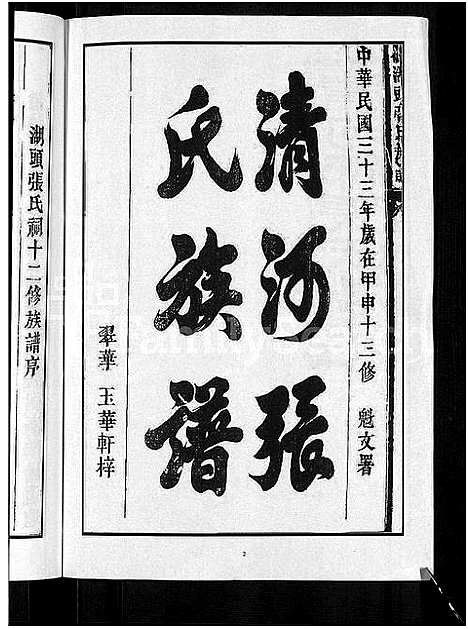 中華民國三十三年歲在甲申十三修 魁文署
清河張
氏族譜
翠華 玉華軒梓
湖頭張氏祠十二修族譜序
2